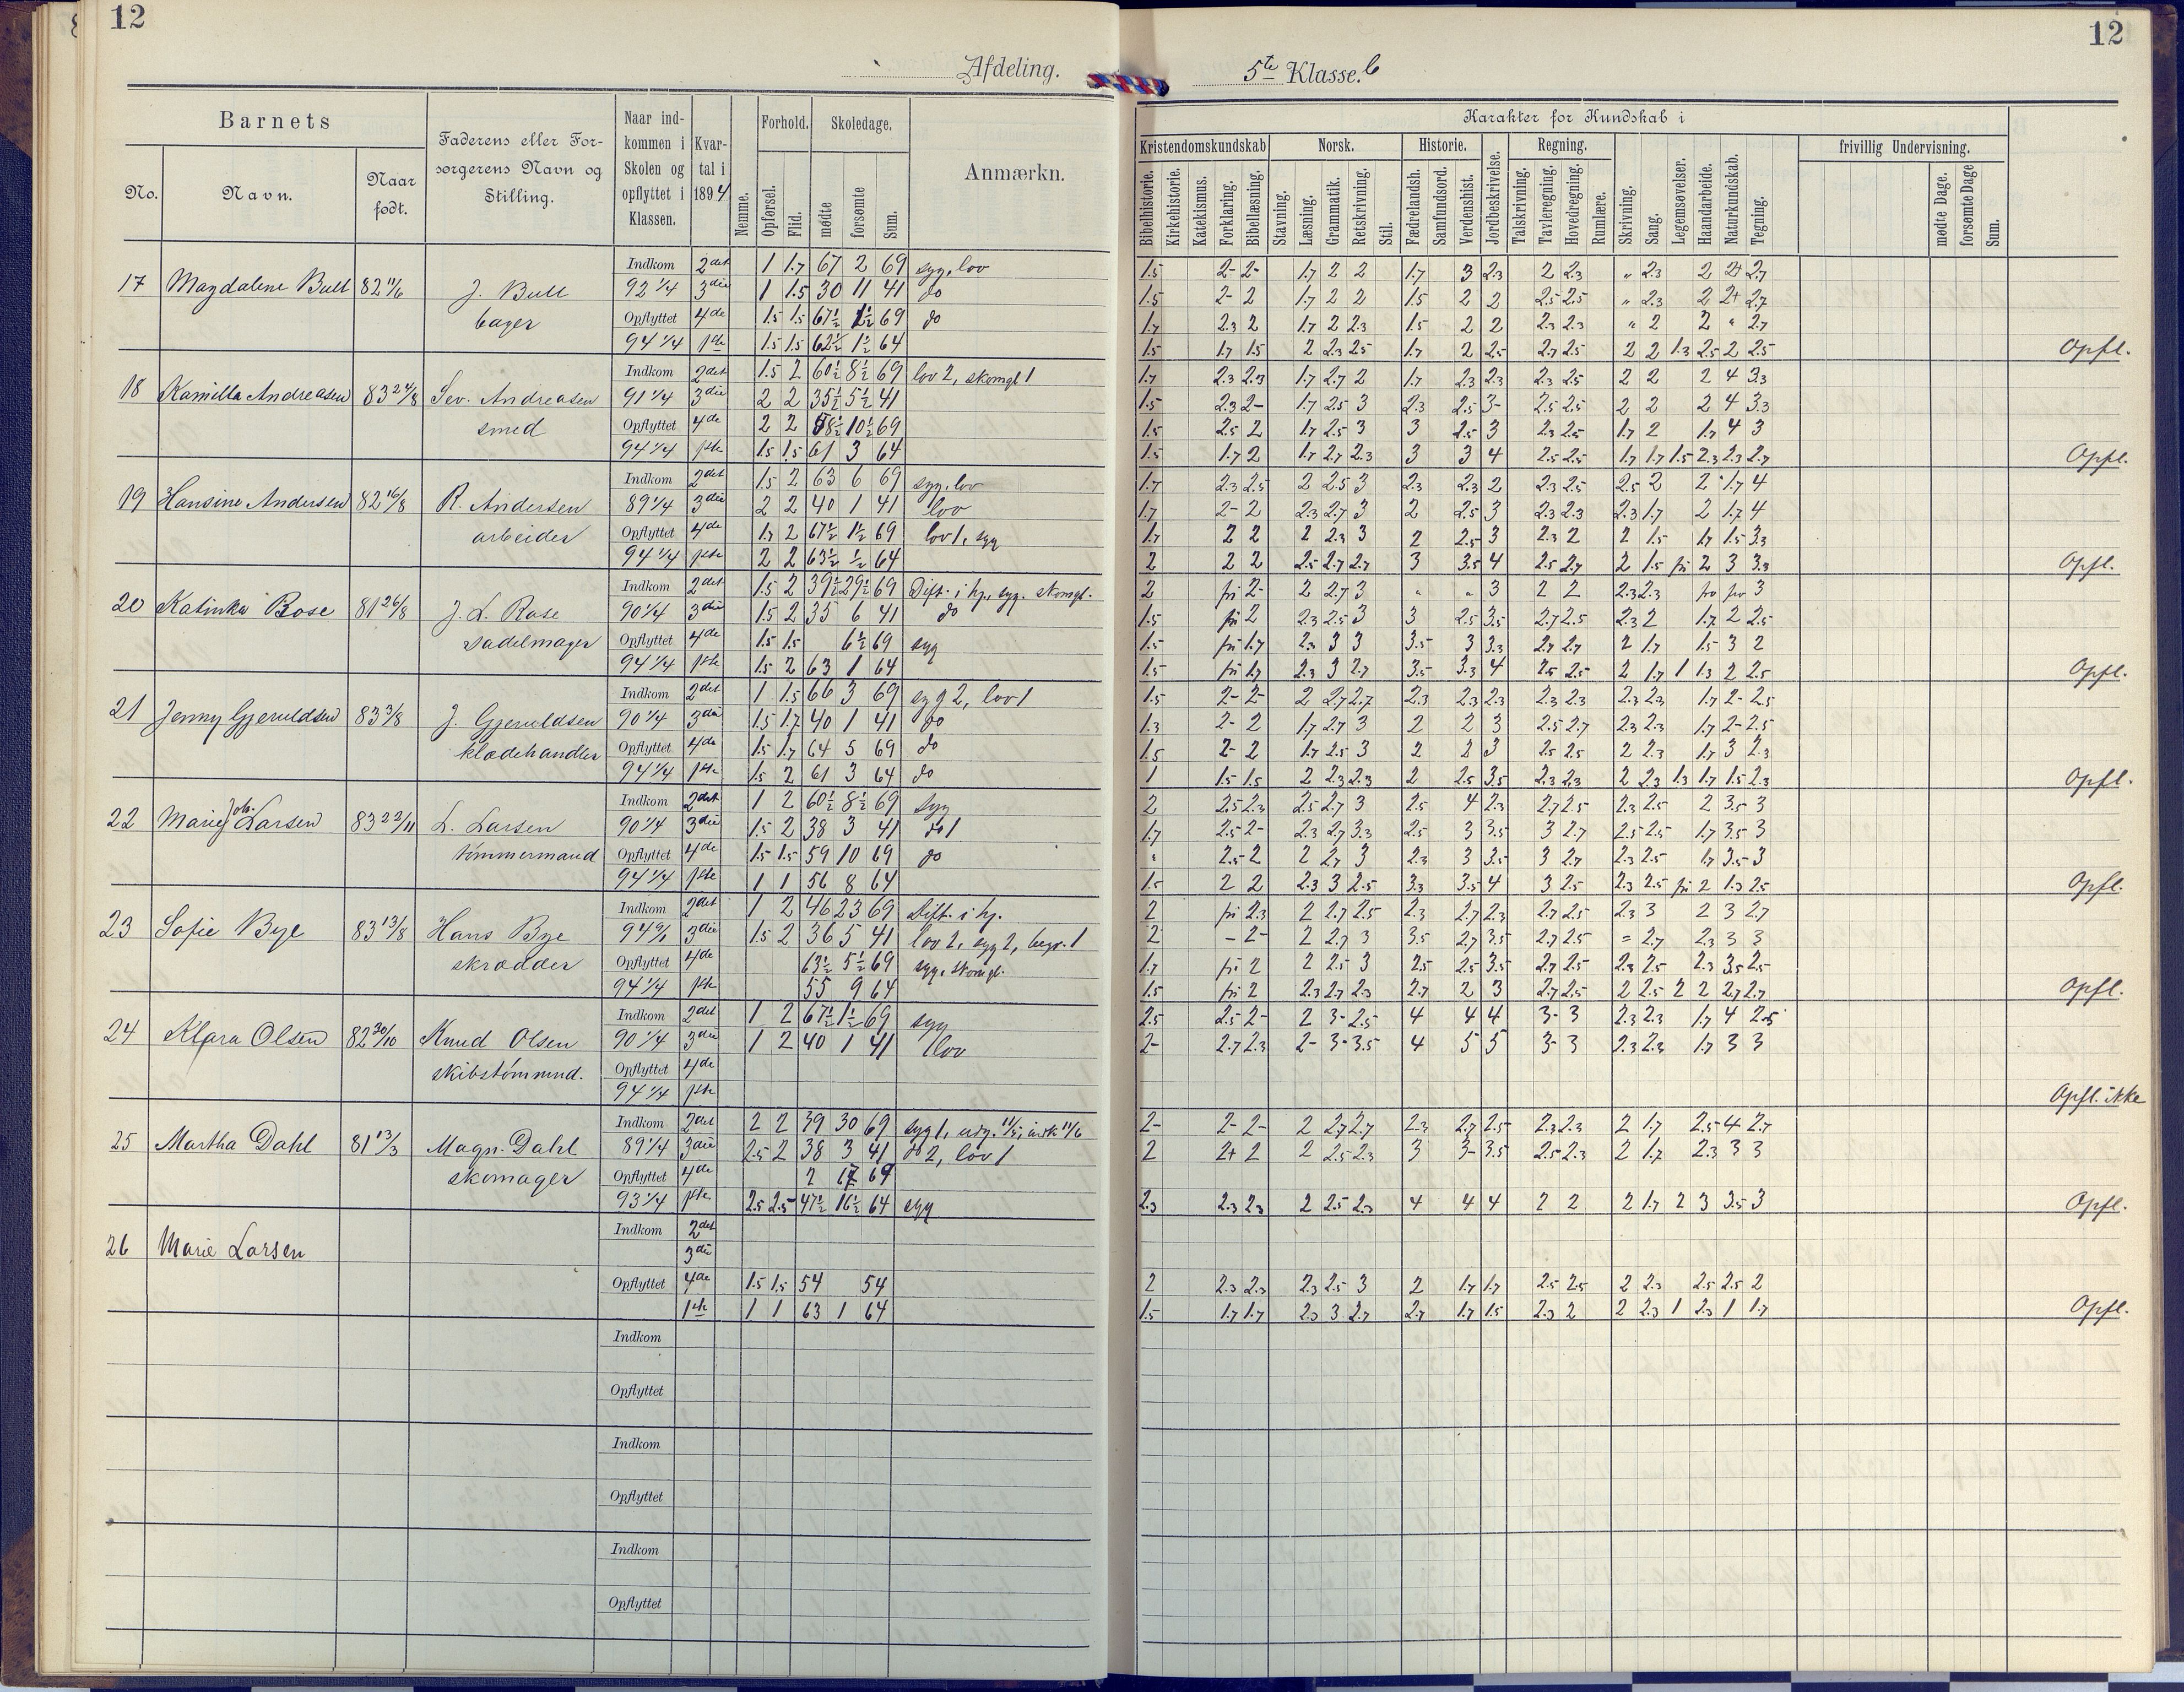 12
12
Afdeling.
5te Klasse. b
Barnets
No.
Navn.
Naar født.
Faderens eller Forsorgerens Navn og Stilling.
Naar indkommen i Skolen og opflyttet i Klassen.
Kvartal i 1894
Nemme.
Forhold.
Opførsel.
Flid.
Skoledage.
mødte
forsømte
Sum.
Anmærkn.
Karakter for Kundskab i
Kristendomskundskab
Bibelhistorie.
Kirkehistorie.
Katekismus.
Forklaring.
Bibellæsning.
Norsk.
Stavning.
Læsning.
Grammatik.
Retskrivning.
Stil.
Historie.
Fædrelandsh.
Samfundsord.
Verdenshist.
Jordbeskrivelse.
Regning.
Talskrivning.
Tavleregning.
Hovedregning.
Rumlære.
Skrivning.
Sang.
Legemsøvelser.
Haandarbeide.
Naturkundskab.
Tegning.
frivillig Undervisning.
mødte Dage.
forsømte Dage
Sum.
17 Magdalene Bull 82 11/6 J. Bull bager
Indkom 2det 1 1.7 67 2 69 syg, lov 1.5 2- 2- 1.7 2 2 1.7 3 2.3 2 2.3 " 2.3 2 2+ 2.7
92 1/4 3die 1 1.5 30 11 41 do 1.5 2- 2 1.7 2 2 1.5 2 2 2.5 2.5 " 2.3 2 2+ 2.7
Opflyttet 4de 1.5 1.5 67½ 1½ 69 do 1.7 2.3 2 1.7 2 2.3 1.5 2 2 2.3 2.3 " 2 2 " 2.7
94 1/4 1ste 1.5 1.5 62½ 1½ 64 1.5 1.7 1.5 2 2.3 2.5 1.7 2 2.5 2.7 2.5 2 2 1.3 2.5 2 2.5 Opfl.
18 Kamilla Andreasen 83 24/8 Sev. Andreasen smed
Indkom 2det 1.5 2 60½ 8½ 69 lov 2, skomgl 1 1.7 2.3 2.3 1.7 2.7 2 1.7 2.3 2.3 2.3 2.5 2 2 2 4 3.3
91 1/4 3die 2 2 35½ 5½ 41 1.5 2.3 2- 1.7 2.5 3 2.3 2.5 3- 2.5 2.5 2 2 2 4 3.3
Opflyttet 4de 2 2 58½ 10½ 69 1.5 2.5 2 1.7 2.5 3 3 2.5 3 2.3 2.5 1.7 2 1.7 4 3
94 1/4 1ste 1.5 1.5 61 3 64 1.5 1.7 2 1.7 2.7 2.3 3 3 4 2.5 2.5 1.7 1.7 1.5 2.3 2.3 2.7 Opfl.
19 Hansine Andersen 82 16/8 R. Andersen arbeider
Indkom 2det 1.5 2 63 6 69 syg, lov 1.7 2.3 2.5 2 2.5 3 2.3 2.3 2 2.3 2.5 2.5 2 2 1.7 4
89 1/4 3die 2 2 40 1 41 lov 1.7 2- 2 2.3 2.7 3 2 2.5 3 2.3 2.3 2.3 1.7 2 1.7 4
Opflyttet 4de 1.7 2 67½ 1½ 69 lov 1, syg 1.7 2 2 2 2.3 3 2 2.5 3 2.3 2 2 1.5 1.7 1.5 3.3
94 1/4 1ste 2 2 63½ ½ 64 2 2 2 2.5 2.7 2.7 3 3.5 4 2.5 2.7 2 1.5 fri 2 3 3.3 Opfl.
20 Katinka Bose 81 26/8 J. L. Rose sadelmager
Indkom 2det 1.5 2 39½ 29½ 69 Dift. i hj., syg. skomgl. 2 fri 2- 2 2.7 3 " " 3 2 2 2.3 2.3 3
90 1/4 3die 1.5 2 35 6 41 do 1.5 fri 2 2.3 2.5 3 3 2.5 3.5 2.7 2.5 2.3 2 1.7 2 2.5
Opflyttet 4de 1.5 1.5 6½ 69 syg 1.5 fri 1.7 2.3 3 3 3.5 3 3.3 2.7 2.7 2 1.7 1.5 3 2
94 1/4 1ste 1.5 2 63 1 64 1.5 fri 1.7 2.3 3 2.7 3.5 3.3 4 2.5 2.5 2 1.7 1 1.3 2 2.5 Opfl.
21 Jenny Gjeruldsen 83 3/8 J. Gjeruldsen klædehandler
Indkom 2det 1 1.5 66 3 69 syg 2, lov 1 1.5 2- 2- 2 2.7 2.7 2.3 2.3 2.3 2.3 2.3 2.3 2.3 1.7 2- 2.5
90 1/4 3die 1.5 1.7 40 1 41 do 1.3 2- 2 1.7 2.7 3 2 2 3 2.5 2.7 2.3 2.3 1.7 2- 2.5
Opflyttet 4de 1.5 1.7 64 5 69 do 1.5 2- 2 1.7 2.5 3 2 2 3 2.5 2.5 2 2.3 1.7 3 2.3
94 1/4 1ste 1.5 2 61 3 64 do 1 1.5 1.5 2 2.3 2.3 2 2.5 3.5 2.3 2.3 2 2.3 1.3 1.7 1.5 2.3 Opfl.
22 Marie Joh. Larsen 83 22/11 L. Larsen tømmermand
Indkom 2det 1 2 60½ 8½ 69 Syg 2 2.5 2.3 2.5 2.7 3 2.5 4 2.3 2.7 2.5 2.3 2.5 2 3.5 3
90 1/4 3die 1.5 2 38 3 41 do 1 1.7 2.5 2- 2.3 2.7 3.3 2.5 3 3.5 3 2.7 2.5 2.5 1.7 3.5 3
Opflyttet 4de 1.5 1.5 59 10 69 do " 2.5 2 2 2.7 3 2.3 3 3.5 3 2.7 2.3 2.5 1.7 3.5 3
94 1/4 1ste 1 1 56 8 64 1.5 2 2 2.3 3 2.5 3.3 3.5 4 3 2.5 2.3 2.5 fri 2 1.3 2.5 Opfl.
23 Sofie Bye 83 13/8 Hans Bye skrædder
Indkom 2det 1 2 46 23 69 Dift. i hj. 2 fri 2.3 2 2.7 2.5 2.3 2.7 2.3 2.7 2.5 2.3 3 2 3 2.7
94 3die 1.5 2 36 5 41 lov 2, syg 2, begr. 1 2 - 2- 2 2.7 3 3.5 2.7 3.5 2.7 2.5 = 2.7 2.3 3 3
Opflyttet 4de 63½ 5½ 69 syg, skomgl. 1.7 fri 2 2 2.5 3 2.5 2.5 3.5 2.7 2.5 2.3 2.5 2.3 3.5 2.5
94 1/4 1ste 55 9 64 1.5 fri 2 2.3 2.7 2.3 2.7 2 3 2.7 2.5 2 2.5 2 2 2.7 2.7 Opfl.
24 Klara Olsen 82 30/10 Knud Olsen skibstømmd.
Indkom 2det 1 2 67½ 1½ 69 syg 2.5 2.5 2- 2 3- 2.5 4 4 4 3- 3 2.3 2.3 1.7 4 2.5
90 1/4 3die 1 2 40 1 41 lov 2- 2.7 2.3 2- 3- 3.5 4 5 5 3- 3 2.3 2.3 1.7 3 3
Opflyttet 4de
94 1/4 1ste Opfl. ikke
25 Martha Dahl 81 13/3 Magn. Dahl skomager
Indkom 2det 2 2 39 30 69 syg 1, 2- 2- 2- 2 2.7 2.7 2.3 2.7 2.5 2.3 2.3 2 1.7 2.5 4 2.7
89 1/4 3die 2.5 2 38 3 41 do 2, lov 1 2 2+ 2 2 2.5 2.3 3 3- 3.5 2.5 2.3 2 1.7 2.3 3 3
Opflyttet 4de 2 17 69
93 1/4 1ste 2.5 2.5 47½ 16½ 64 syg 2.3 2.3 2.3 2 2.5 2.3 4 4 4 2 2 2 1.7 2 3 3.5 3 Opfl.
26 Marie Larsen
Indkom 2det
3die
Opflyttet 4de 1.5 1.5 54 54 2 2.3 2.3 2.3 2.5 3 2 1.7 1.7 2.5 2.5 2 2.3 2.5 2.5 2
1ste 1 1 63 1 64 1.5 1.7 1.7 2.3 3 2.7 2.7 1.7 1.5 2.3 2 2 2.3 1 2.3 1 1.7 Opfl.
Indkom
Opflyttet
Indkom
Opflyttet
Indkom
Opflyttet